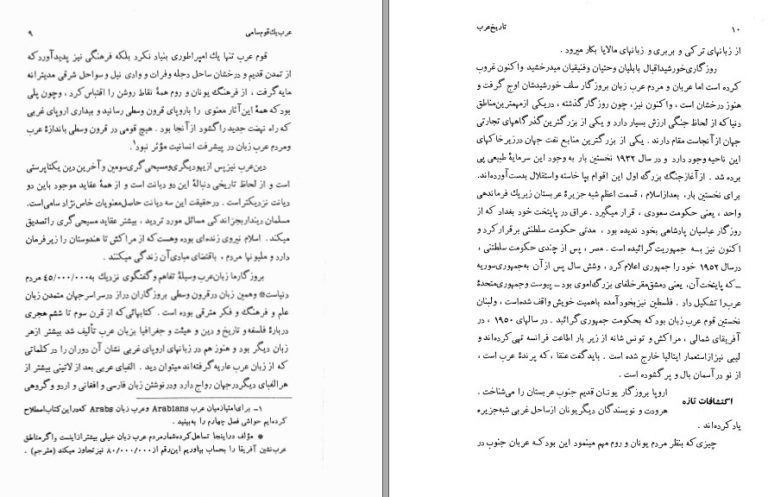 عرب یك قوم سامی ۹
قوم عرب تنها یك امپراطوری بنیاد نکرد بلکه فرهنگی نیز پدید آورد که
از تمدن قدیم و درخشان ساحل دجله وفرات و وادی نیل و سواحل شرقی مدیترانه
مایه گرفت ، از فرهنگ یونان و روم همهٔ نقاط روشن را اقتباس کرد ، وچون پلی
بود که همهٔ این آثار معنوی را باروپای قرون وسطی رسانید و بیداری اروپای غربی
که راه نهضت جدید را گشود از آنجا بود . هیچ قومی در قرون وسطی باندازهٔ عرب
ومردم عرب زبان در پیشرفت انسانیت مؤثر نبود۱
دین عرب نیز پس از یهودیگری و مسیحی گری سومین و آخرین دین یکتا پرستی
است و از لحاظ تاریخی دنبالهٔ این دو دیانت است و از همهٔ عقاید موجود باین دو
دیانت نزدیکتر است . در حقیقت این سه دیانت حاصل معنویات خاص نژاد سامی است.
مسلمان دیندار بجز اندکی مسائل مورد تردید ، بیشتر عقاید مسیحی گری را تصدیق
میکند . اسلام نیروی زنده‌ای بوده وهست که از مراکش تا هندوستان را زیر فرمان
دارد و ملیونها مردم ، باقتضای مبادی آن زندگی میکنند .
بروزگار ما زبان عرب وسیلهٔ تفاهم و گفتگوی نزدیك به ۴۵/۰۰۰/۰۰۰ مردم
دنیاست* وهمین زبان در قرون وسطی بروزگاران دراز در سراسر جهان متمدن زبان
علم و فرهنگ و فکر مترقی بوده است . کتابهائی که از قرن سوم تا ششم هجری
دربارهٔ فلسفه و تاریخ و دین و هیئت و جغرافیا بزبان عرب تألیف شد بیشتر از هر
زبان دیگر بود و هنوز هم در زبانهای اروپای غربی نشان آن دوران را در کلماتی
که از زبان عرب عاریه گرفته‌اند میتوان دید . الفبای عربی بعد از لاتینی بیشتر از
هر الفبای دیگر در جهان رواج دارد و در نوشتن زبان فارسی و افغانی و اردو و گروهی
۱- برای امتیاز میان عرب Arabians و عرب زبان Arabs که در این کتاب اصطلاح
کرده‌ایم حواشی فصل چهارم را به بینید .
* مؤلف در اینجا تساهل کرده شمار مردم عرب زبان خیلی بیشتر از اینست و اگر مناطق
عرب نشین آفریقا را بحساب بیاوریم این رقم از ۸۰/۰۰۰/۰۰۰ نیز تجاوز میکند (مترجم) .
۱۰ تاریخ عرب
از زبانهای ترکی و بربری و زبانهای مالایا بکار میرود .
روزگاری خورشید اقبال بابلیان وحتیان وفنیقیان میدرخشید واکنون غروب
کرده است اما عربان و مردم عرب زبان بروزگار سلف خورشیدشان اوج گرفت و
هنوز درخشان است ، واکنون نیز ، چون روزگار گذشته ، در یکی از مهمترین مناطق
دنیا که از لحاظ جنگی ارزش بسیار دارد و یکی از بزرگترین گذرگاههای تجارتی
جهان از آنجاست مقام دارند . یکی از بزرگترین منابع نفت جهان در زیر خاکهای
این ناحیه وجود دارد و در سال ۱۹۳۲ نخستین بار به وجود این سرمایهٔ طبیعی پی
برده شد . از آغاز جنگ بزرگ اول این اقوام بپا خاسته واستقلال بدست آورده‌اند.
برای نخستین بار، بعد از اسلام ، قسمت اعظم شبه جزیرهٔ عربستان زیر یك فرماندهی
واحد ، یعنی حکومت سعودی ، قرار میگیرد . عراق در پایتخت خود بغداد که از
روزگار عباسیان پادشاهی بخود ندیده بود ، مدتی حکومت سلطنتی برقرار کرد و
اکنون نیز بـه جمهوریت گرائیده است . مصر ، پس از چندی حکومت سلطنتی ،
درسال ۱۹۵۲ خود را جمهوری اعلام کرد ، وشش سال پس از آن به‌جمهوری سوریه
ـ که پایتخت آن، یعنی دمشق مقر خلفای بزرگ اموی بود ـ پیوست و جمهوری متحدهٔ
عرب را تشکیل داد . فلسطین نیز بخود آمده باهمیت خویش واقف شده است ، ولبنان
نخستین قوم عرب زبان بود که بحکومت جمهوری گرائید . در سالهای ۱۹۵۰ ، در
آفریقای شمالی ، مراکش و تونس شانه از زیر بار اطاعت فرانسه تهی کرده‌اند و
لیبی نیز از استعمار ایتالیا خارج شده است . باید گفت عنقا ، که پرندهٔ عرب است ،
از نو در آسمان بال و پر گشوده است .
اروپا بروزگار یونان قدیم جنوب عربستان را می‌شناخت .
اکتشافات تازه
هرودت و نویسندگان دیگر یونان از ساحل غربی شبه‌جزیره
یاد کرده‌اند .
چیزی که بنظر مردم یونان و روم مهم مینمود این بود که عربان جنوب در